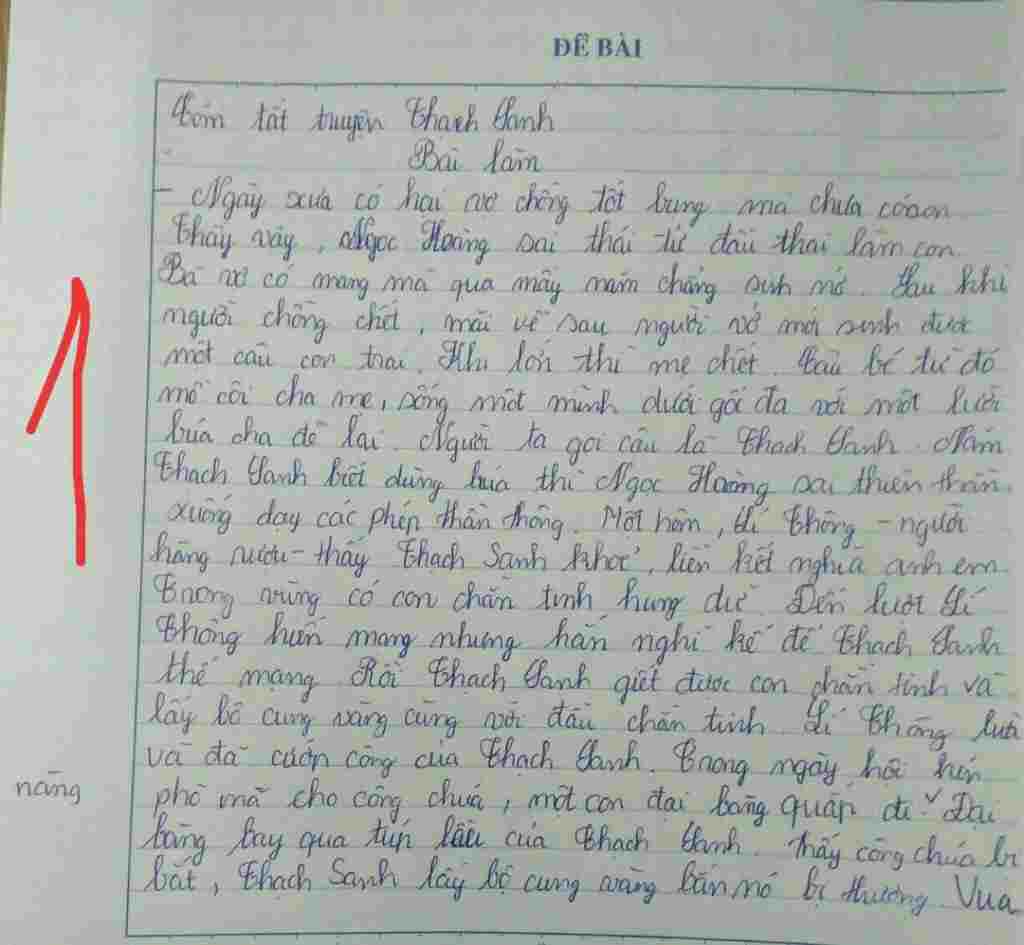 ĐỀ BÀI
Tóm tắt truyện Thạch Sanh
Bài làm
- Ngày xưa có hai vợ chồng tốt bụng mà chưa có con
Thấy vậy, Ngọc Hoàng sai thái tử đầu thai làm con.
Bà vợ có mang mà qua mấy năm chẳng sinh nở. Sau khi
người chồng chết, mãi về sau người vợ mới sinh được
một cậu con trai. Khi lớn thì mẹ chết. Cậu bé từ đó
mồ côi cha mẹ, sống một mình dưới gốc đa với một lưỡi
búa cha để lại. Người ta gọi cậu là Thạch Sanh. Năm
Thạch Sanh biết dùng búa thì Ngọc Hoàng sai thiên thần
xuống dạy các phép thần thông. Một hôm, Lí Thông - người
hàng rượu - thấy Thạch Sanh khoẻ, liền kết nghĩa anh em.
Trong vùng có con chằn tinh hung dữ. Đến lượt Lí
Thông hiến mạng nhưng hắn nghĩ kế để Thạch Sanh
thế mạng. Rồi Thạch Sanh giết được con chằn tinh và
lấy bộ cung vàng cùng với đầu chằn tinh. Lí Thông lừa
và đã cướp công của Thạch Sanh. Trong ngày hội kén
phò mã cho công chúa, một con đại bàng quắp đi. Đại
nàng
bàng bay qua túp lều của Thạch Sanh. Thấy công chúa bị
bắt, Thạch Sanh lấy bộ cung vàng bắn nó bị thương. Vua
1